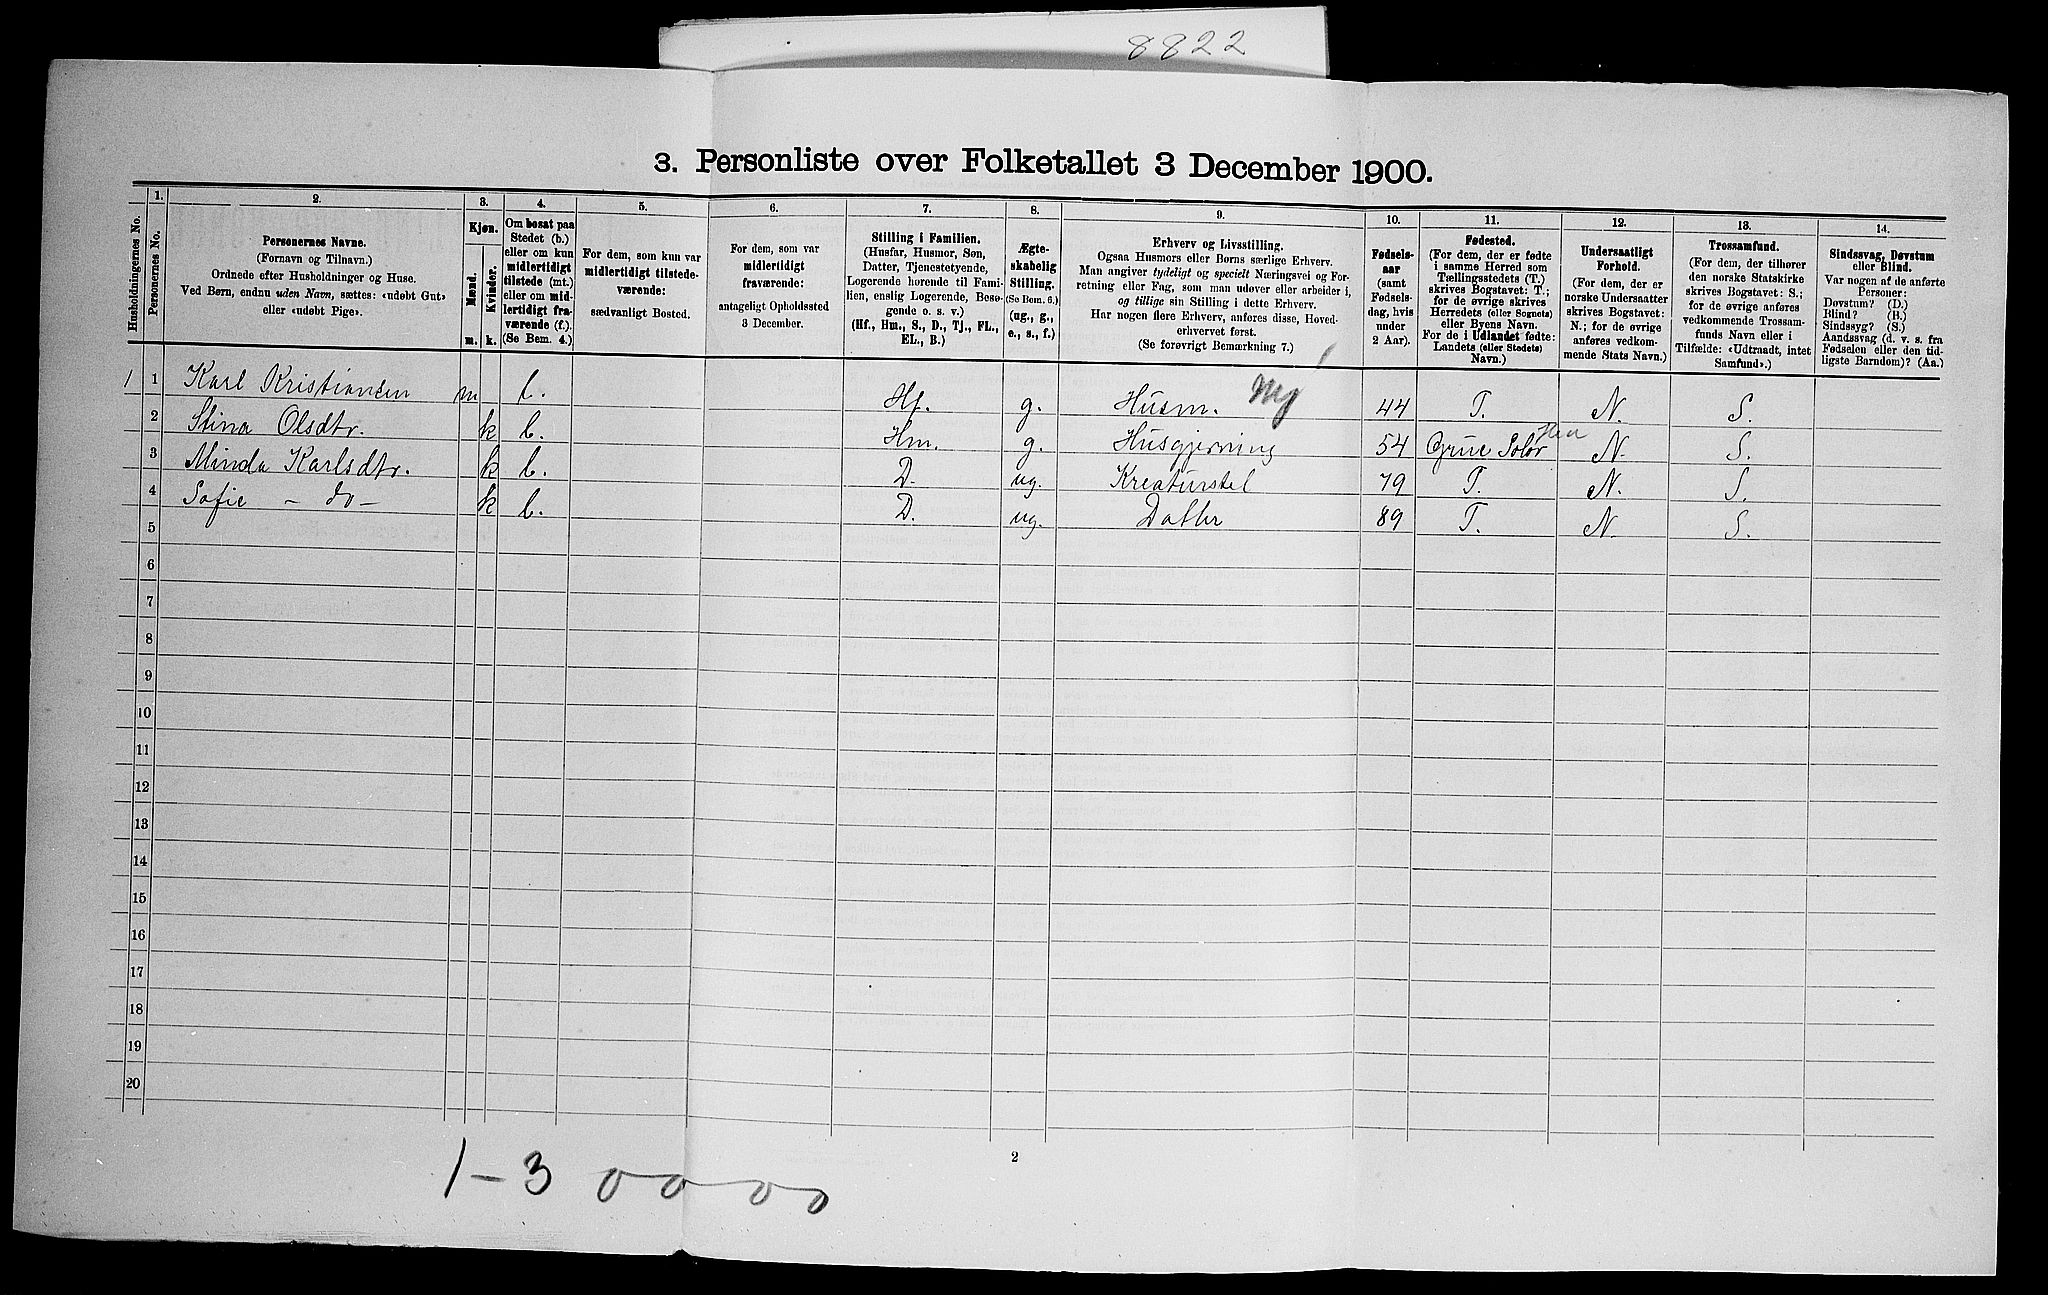 8822
3. Personliste over Folketallet 3 December 1900.
Husholdningernes No.
1.
Personernes No.
2.
Personernes Navne.
(Fornavn og Tilnavn.)
Ordnede efter Husholdninger og Huse.
Ved Børn, endnu uden Navn, sættes: «udøbt Gut»
eller «udøbt Pige».
3.
Kjøn.
Mænd.
Kvinder.
m. k.
4.
Om bosat paa
Stedet (b.)
eller om kun
midlertidigt
tilstede (mt.)
eller om mid-
lertidigt fra-
værende (f.).
(Se Bem. 4.)
5.
For dem, som kun var
midlertidigt tilstede-
værende:
sædvanligt Bosted.
6.
For dem, som var
midlertidigt
fraværende:
antageligt Opholdssted
3 December.
7.
Stilling i Familien.
(Husfar, Husmor, Søn,
Datter, Tjenestetyende,
Logerende hørende til Fami-
lien, enslig Logerende, Besø-
gende o. s. v.)
(Hf., Hm., S., D., Tj., FL.,
EL., B.)
8.
Ægte-
skabelig
Stilling.
(Se Bem. 6.)
(ug., g.,
e., s., f.)
9.
Erhverv og Livsstilling.
Ogsaa Husmors eller Børns særlige Erhverv.
Man angiver tydeligt og specielt Næringsvei og For-
retning eller Fag, som man udøver eller arbeider i,
og tillige sin Stilling i dette Erhverv.
Har nogen flere Erhverv, anføres disse, Hoved-
erhvervet først.
(Se forøvrigt Bemærkning 7.)
10.
Fødsels-
aar
(samt
Fødsels-
dag, hvis
under
2 Aar).
11.
Fødested.
(For dem, der er fødte
i samme Herred som
Tællingsstedets (T.)
skrives Bogstavet: T.;
for de øvrige skrives
Herredets (eller Sognets)
eller Byens Navn.
For de i Udlandet fødte:
Landets (eller Stedets)
Navn.)
12.
Undersaatligt
Forhold.
(For dem, der er
norske Undersaatter
skrives Bogstavet:
N.; for de øvrige
anføres vedkom-
mende Stats Navn.)
13.
Trossamfund.
(For dem, der tilhører
den norske Statskirke
skrives Bogstavet: S.;
for de øvrige anføres
vedkommende Trossam-
funds Navn eller i
Tilfælde: «Udtraadt, intet
Samfund».)
14.
Sindssvag, Døvstum
eller Blind.
Var nogen af de anførte
Personer:
Døvstum? (D.)
Blind? (B.)
Sindssyg? (S.)
Aandssvag (d. v. s. fra
Fødselen eller den tid-
ligste Barndom)? (Aa.)
1 1 Karl Kristiansen m b. Hf. g. Husm. 44 T. N. S.
2 Stina Olsdtr. k b. Hm. g. Husgjerning 54 Grue Solør N. S.
3 Minda Karlsdtr. k b. D. ug. Kreaturstel 79 T. N. S.
4 Sofie - do - k b. D. ug. Datter 89 T. N. S.
5
6
7
8
9
10
11
12
13
14
15
16
17
18
19
20
2
1 - 3 0 0 0 0